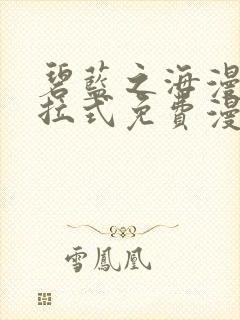 碧藍之海漫
拉式免費漫
雪鳳凰